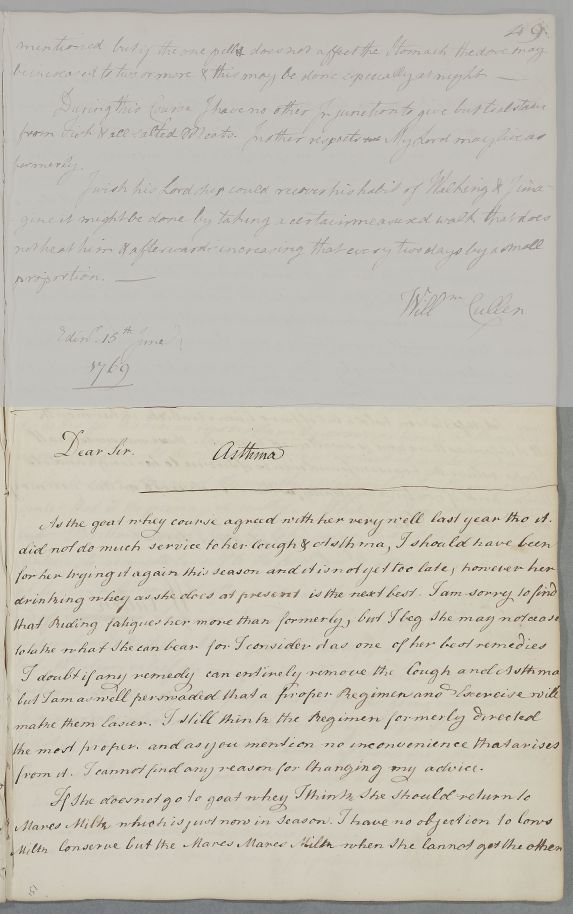 49
mentioned but if the one pill does not affect the Stomach the dose may
be increased to two or more & this may be done especially at night —
During this Course I have no other Injunction to give but to abstain
from Fish & all salted Meats. In other respects My Lord may live as
formerly.
I wish his Lordship could recover his habit of Walking & I ima-
gine it might be done by taking a certain measured walk that does
not heat him & afterwards increasing that every two days by a small
proportion. —
Willm Cullen
Edinr. 15th June
1769
Dear Sir. Asthma
As the goat whey course agreed with her very well last year tho it
did not do much service to her Cough & Asthma, I should have been
for her trying it again this season and it is not yet too late, however her
drinking whey as she does at present is the next best. I am sorry to find
that Riding fatigues her more than formerly, but I beg she may not cease
to take what she can bear for I consider it as one of her best remedies
I doubt if any remedy can entirely remove the Cough and Asthma
but I am as well perswaded that a proper Regimen and Exercise will
make them Easier. I still think the Regimen formerly directed
the most proper. and as you mention no inconvenience that arises
from it. I cannot find any reason for Changing my advice.
If She does not go to goat whey I think She should return to
Mares Milk which is just now in Season. I have no objection to Cows
Milk Conserve but the Mares Mares Milk when She Cannot get the other